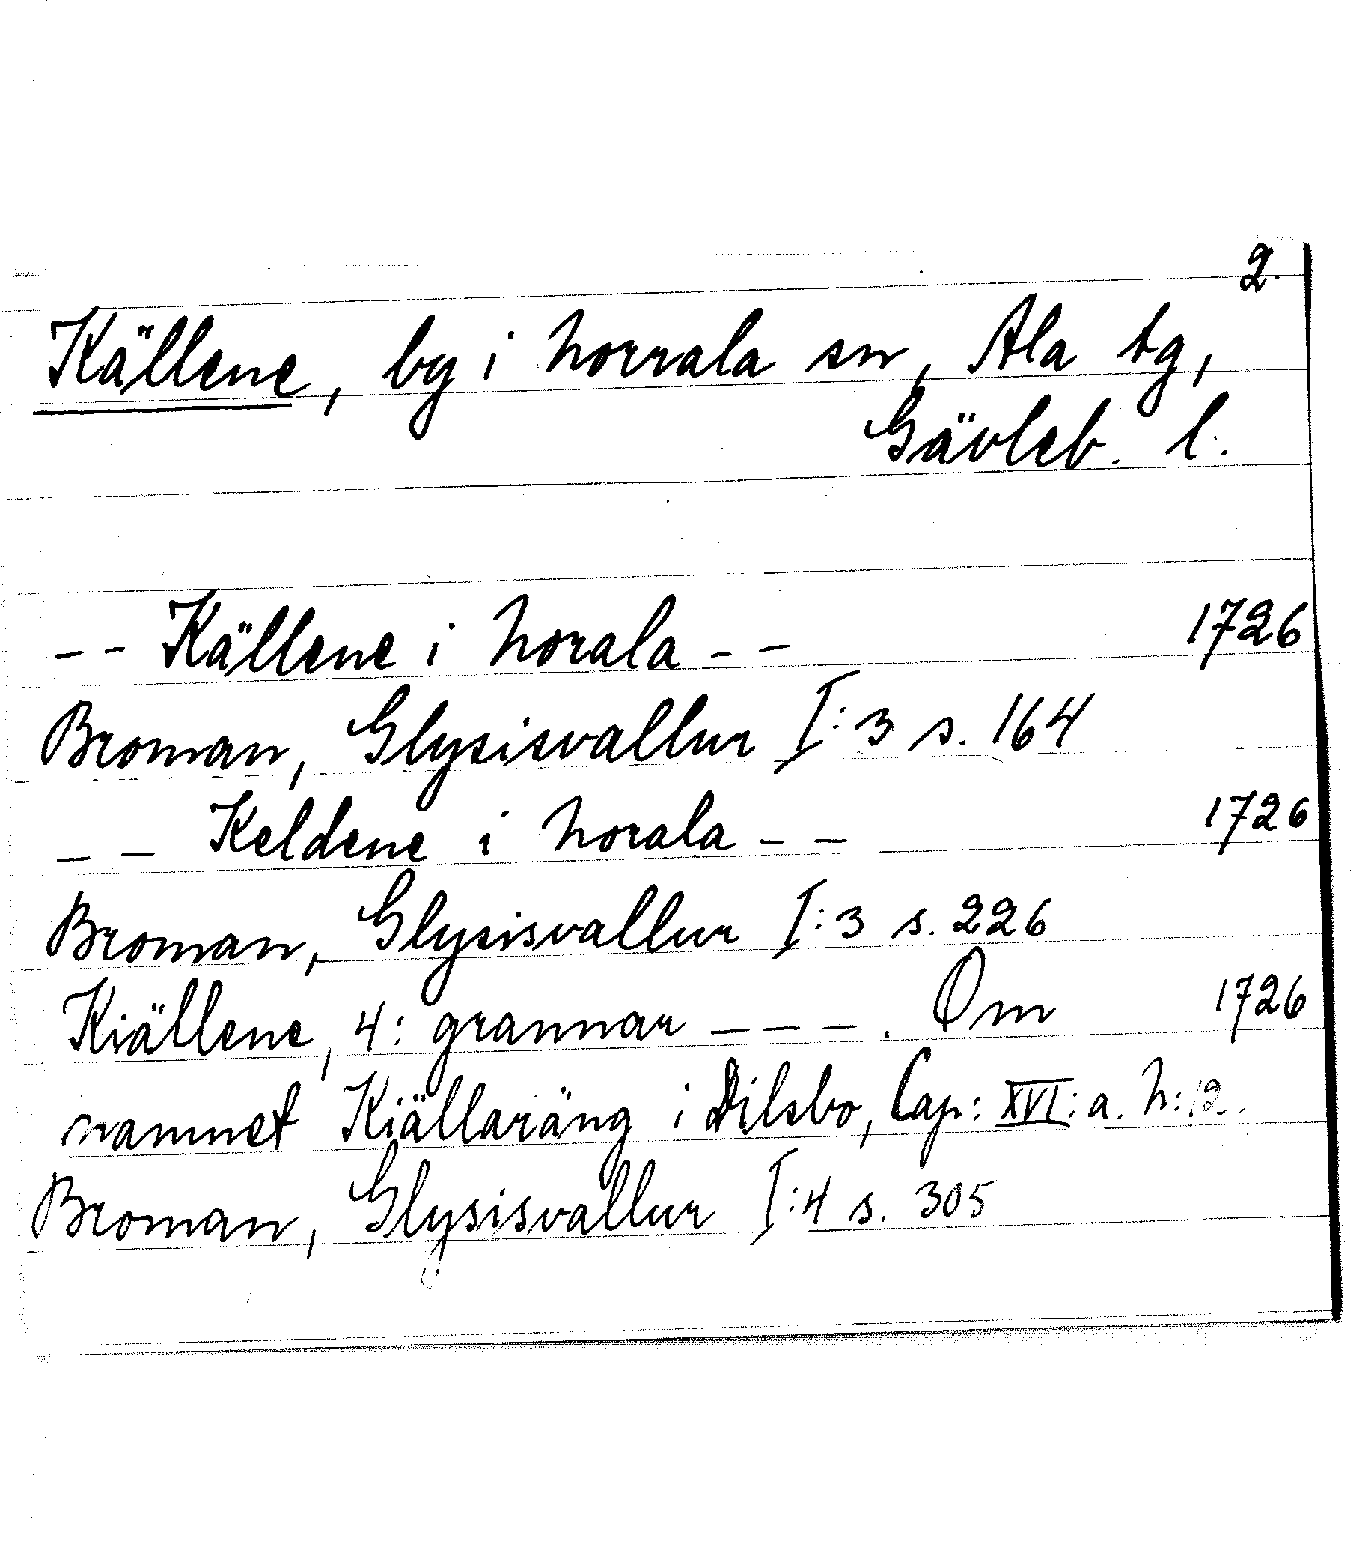 2.
Källene, by i Norrala sn, Ala tg,
Gävleb. l.
-- Källene i Norala -- 1726
Broman, Glysisvallur I:3 s. 164
-- Keldene i Norala -- 1726
Broman, Glysisvallur I:3 s. 226
Kiällene, 4: grannar ---. Om 1726
namnet Kiällaräng i Dilsbo, Cap: XVI: a. N: 12.
Broman, Glysisvallur I:4 s. 305